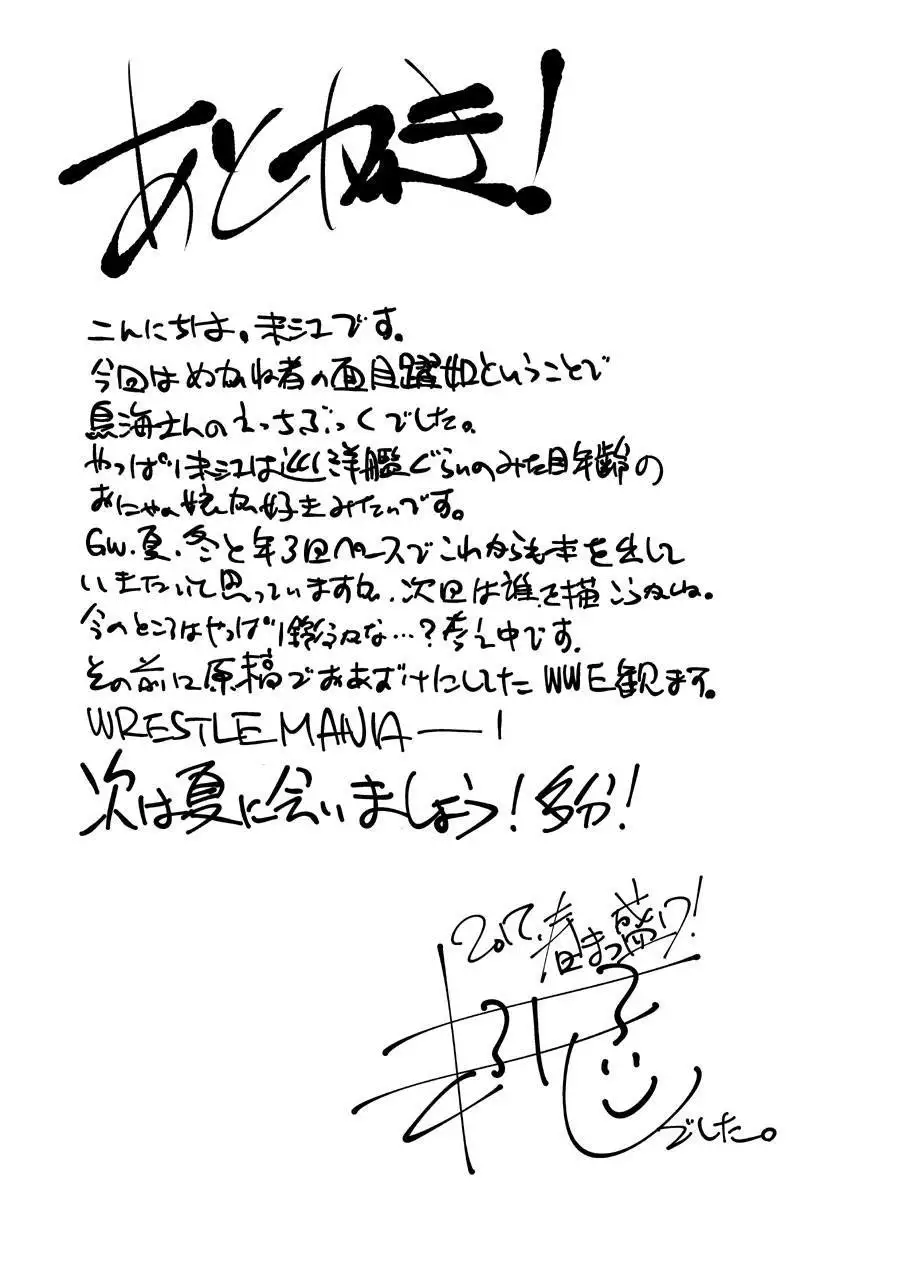 あとがき!
こんにちは。末江です。
今回はめがね者の面目躍如ということで
鳥海さんのえっちぶっくでした。
やっぱり末江は巡洋艦ぐらいのみた目年齢の
おにゃの娘が好きみたいです。
GW、夏、冬と年3回ペースでこれからも本を出して
いきたいって思っていますが、次回は誰を描こうかしら。
今のところはやっぱり鈴谷かな…?考え中です。
その前に原稿でおあずけにしてたWWE観ます。
WRESTLE MANIA──!
次は夏に会いましょう!多分!
2017.春まっ盛り!
でした。